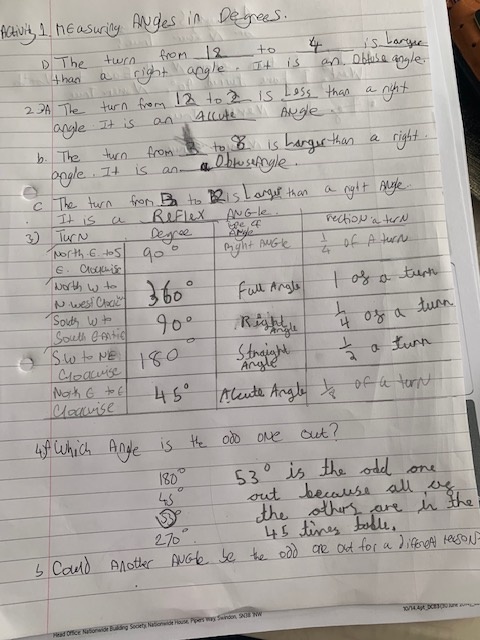 Activity 1 Measuring Angles in Degrees.
1) The turn from 12 to 4 is Larger
than a right angle. It is an Obtuse angle.
2A The turn from 12 to 2 is Less than a right
angle It is an Accute Angle.
b. The turn from to 8 is Larger than a right
angle. It is an ObtuseAngle.
C The turn from to 12 is Larger than a right Angle.
It is a Reflex Angle.
3) Turn Degree Angle a turn
North E to S E. Clockwise 90° Right Angle 1/4 of A turn
North W to N.West Clock 360° Full Angle 1 of a turn
South W to South E 90° Right Angle 1/4 of a turn
S.W to NE Clockwise 180° Straight Angle 1/2 a turn
North E to E Clockwise 45° Accute Angle 1/8 of a turn
Which Angle is the odd one out?
180° 53° is the odd one
45° out because all
53° the others are in the
270° 45 times table.
5 Could Another Angle be the odd one out for a different reason?
Head Office: Nationwide Building Society, Nationwide House, Pipers Way, Swindon, SN38 1NW